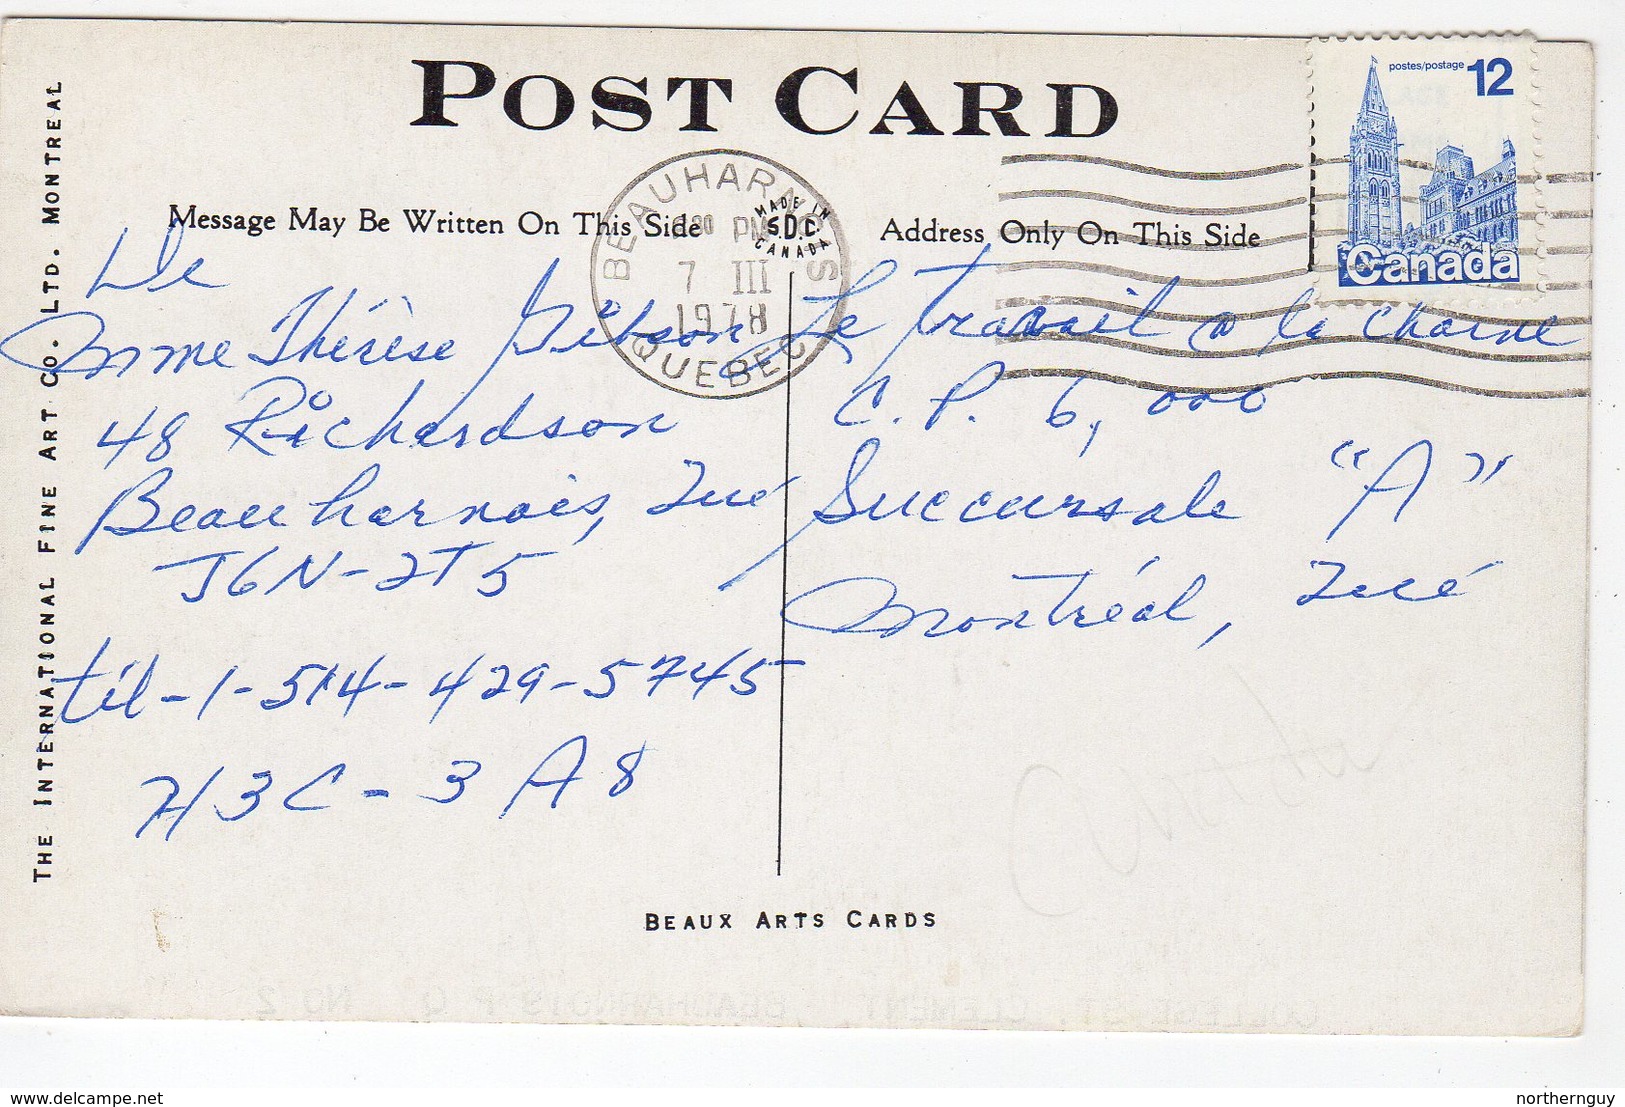 POST CARD
postes/postage 12
Canada
BEAUHARNOIS
QUEBEC
PM
7 III
1978
MADE IN
S.D.C.
CANADA
Message May Be Written On This Side
Address Only On This Side
THE INTERNATIONAL FINE ART CO. LTD. MONTREAL
De
Mme Thérèse Gibson
48 Richardson
Beauharnois, Qué
J6N-2T5
tél-1-514-429-5745
H3C-3A8
Le travail a la chaine
C.P. 6,000
Succursale "A"
Montréal, Qué
BEAUX ARTS CARDS
COLLEGE ST. CLEMENT, BEAUHARNOIS P Q NO 2
delcampe.net
northernguy